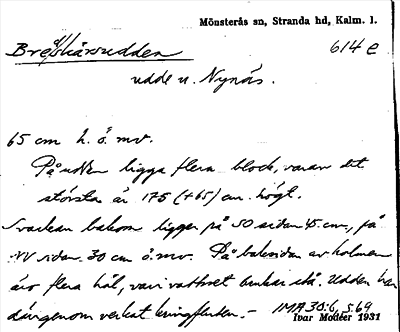 Mönsterås sn, Stranda hd, Kalm. l.
614 e
Bredskärsudden
udde u. Nynäs.
65 cm h. ö. mv.
På udden ligga flera block, varav det
största är 175 (+65) cm. högt.
Svackan bakom ligger på SO sidan 45 cm., på
NV sidan 30 cm ö. mv. På baksidan av holmen
äro flera hål, vari vattnet brukar stå. Udden har
därigenom verkat kringfluten. —
IMA 30:6, s. 69
Ivar Modéer 1931